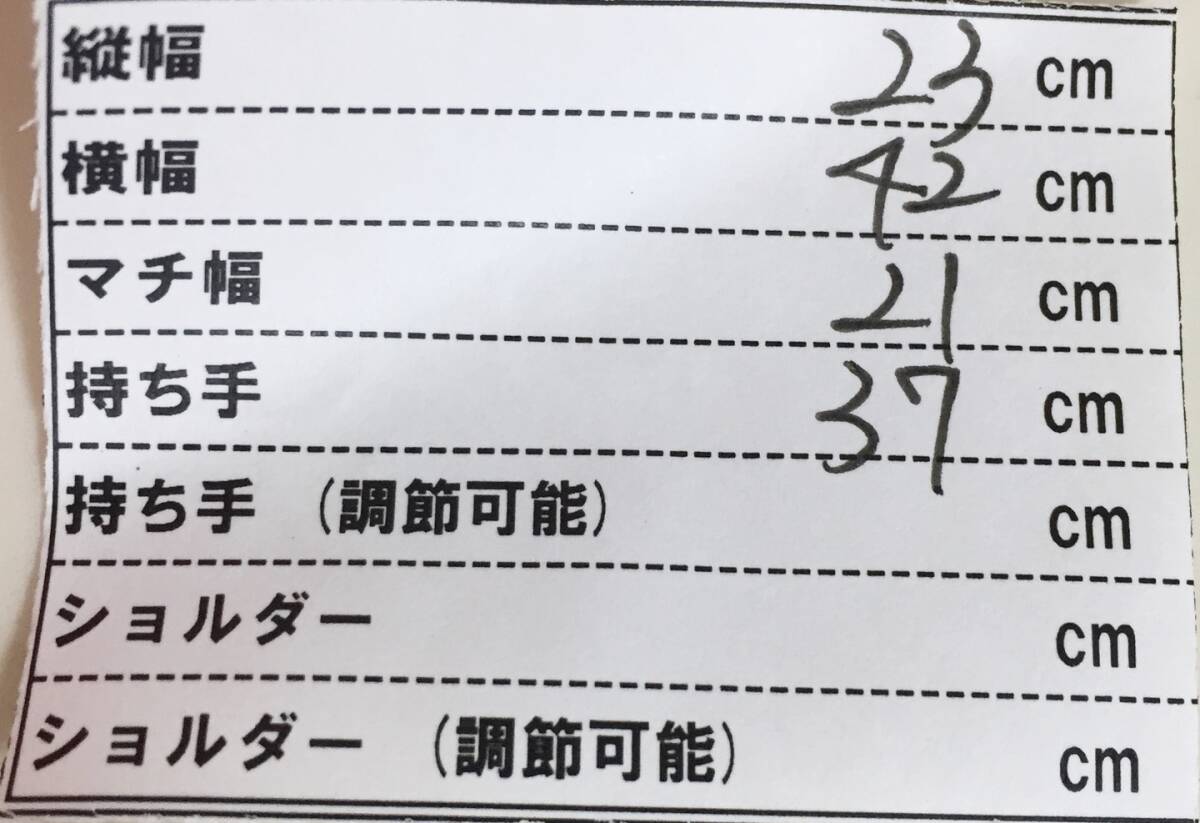 縦幅 23 cm
横幅 42 cm
マチ幅 21 cm
持ち手 37 cm
持ち手 (調節可能) cm
ショルダー cm
ショルダー (調節可能) cm